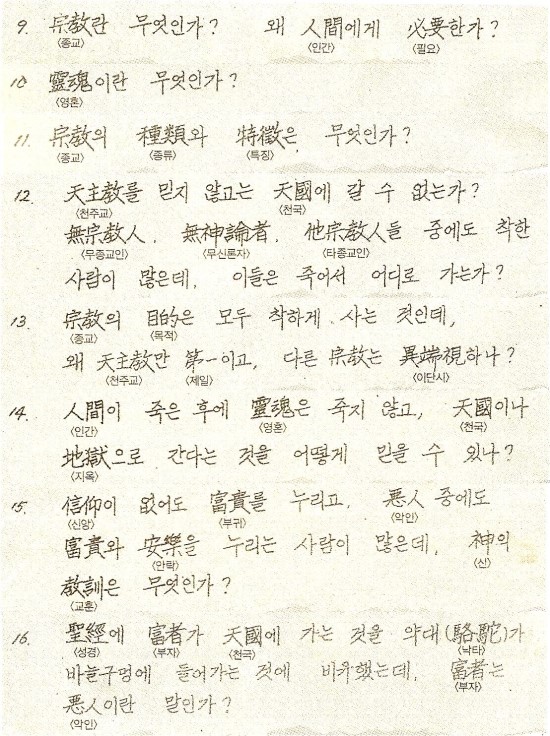 9. 宗教란 무엇인가? 왜 人間에게 必要한가?
〈종교〉 〈인간〉 〈필요〉
10 靈魂이란 무엇인가?
〈영혼〉
11. 宗教의 種類와 特徵은 무엇인가?
〈종교〉 〈종류〉 〈특징〉
12. 天主教를 믿지 않고는 天國에 갈 수 없는가?
〈천주교〉 〈천국〉
無宗教人, 無神論者, 他宗教人들 중에도 착한
〈무종교인〉 〈무신론자〉 〈타종교인〉
사람이 많은데, 이들은 죽어서 어디로 가는가?
13. 宗教의 目的은 모두 착하게 사는 것인데,
〈종교〉 〈목적〉
왜 天主教만 第一이고, 다른 宗教는 異端視하나?
〈천주교〉 〈제일〉 〈이단시〉
14. 人間이 죽은 후에 靈魂은 죽지 않고, 天國이나
〈인간〉 〈영혼〉 〈천국〉
地獄으로 간다는 것을 어떻게 믿을 수 있나?
〈지옥〉
15. 信仰이 없어도 富貴를 누리고, 惡人 중에도
〈신앙〉 〈부귀〉 〈악인〉
富貴와 安樂을 누리는 사람이 많은데, 神의
〈안락〉 〈신〉
教訓은 무엇인가?
〈교훈〉
16. 聖經에 富者가 天國에 가는 것을 약대(駱駝)가
〈성경〉 〈부자〉 〈천국〉 〈낙타〉
바늘구멍에 들어가는 것에 비유했는데, 富者는
〈부자〉
惡人이란 말인가?
〈악인〉